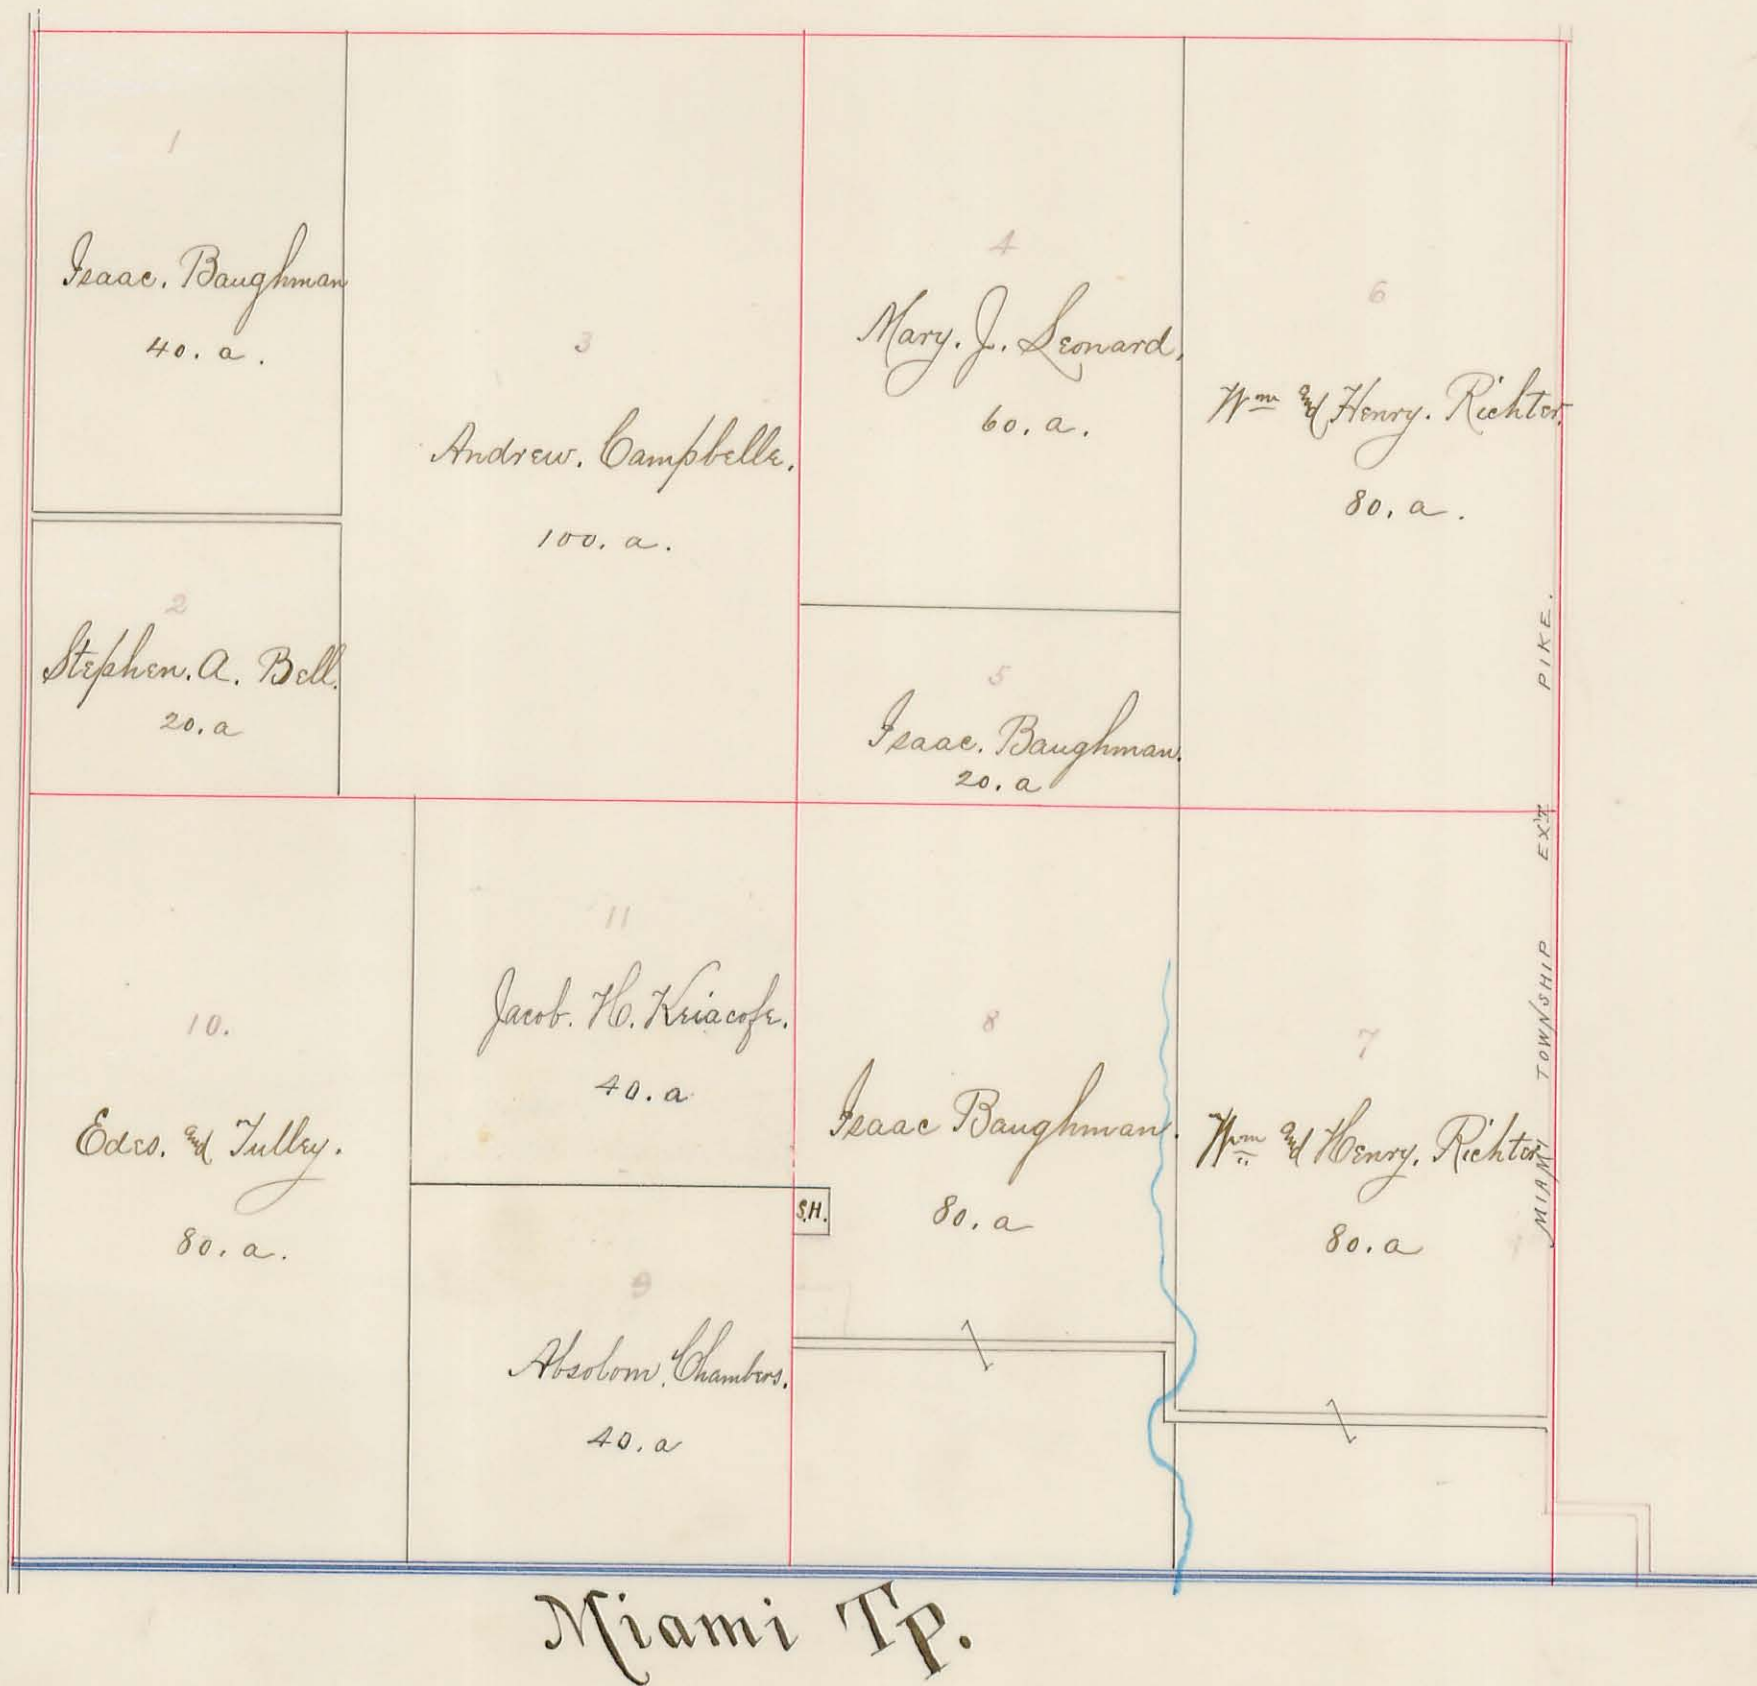 1
Isaac. Baughman
40. a.
2
Stephen. A. Bell.
20. a
3
Andrew. Campbelle.
100. a.
4
Mary. J. Leonard.
60. a.
5
Isaac. Baughman.
20. a
6
Wm and Henry. Richter.
80. a.
10.
Edes. and Tulley.
80. a.
11
Jacob. H. Kriacofe.
40. a
9
Absolom. Chambers.
40. a
S.H.
8
Isaac Baughman.
80. a
7
Wm and Henry. Richter
80. a
MIAMI TOWNSHIP EXT PIKE.
Miami Tp.